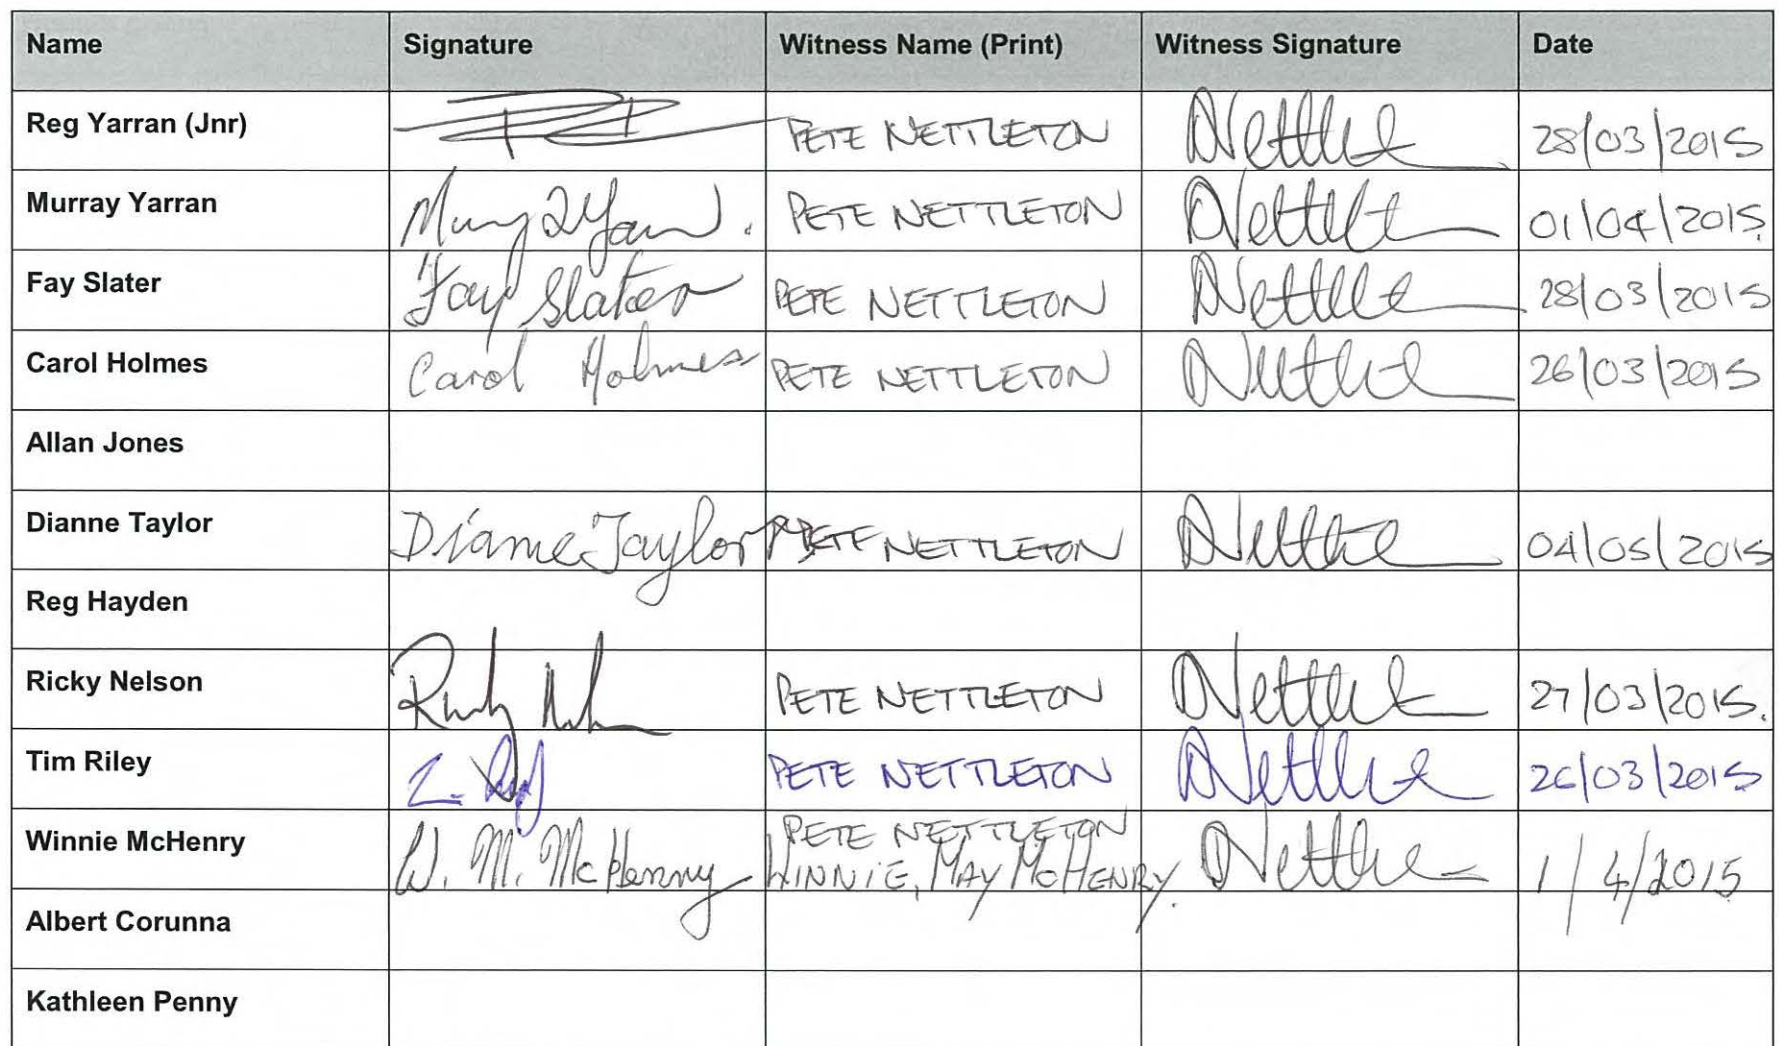 Name Signature Witness Name (Print) Witness Signature Date
Reg Yarran (Jnr) PETE NETTLETON Nettle 28/03/2015
Murray Yarran Murray Yarran. PETE NETTLETON Nettle 01/04/2015
Fay Slater Fay Slater PETE NETTLETON Nettle 28/03/2015
Carol Holmes Carol Holmes PETE NETTLETON Nettle 26/03/2015
Allan Jones
Dianne Taylor Dianne Taylor PETE NETTLETON Nettle 04/05/2015
Reg Hayden
Ricky Nelson PETE NETTLETON Nettle 27/03/2015.
Tim Riley PETE NETTLETON Nettle 26/03/2015
PETE NETTLETON
Winnie McHenry W. M. McHenry WINNIE, MAY McHENRY. Nettle 1/4/2015
Albert Corunna
Kathleen Penny